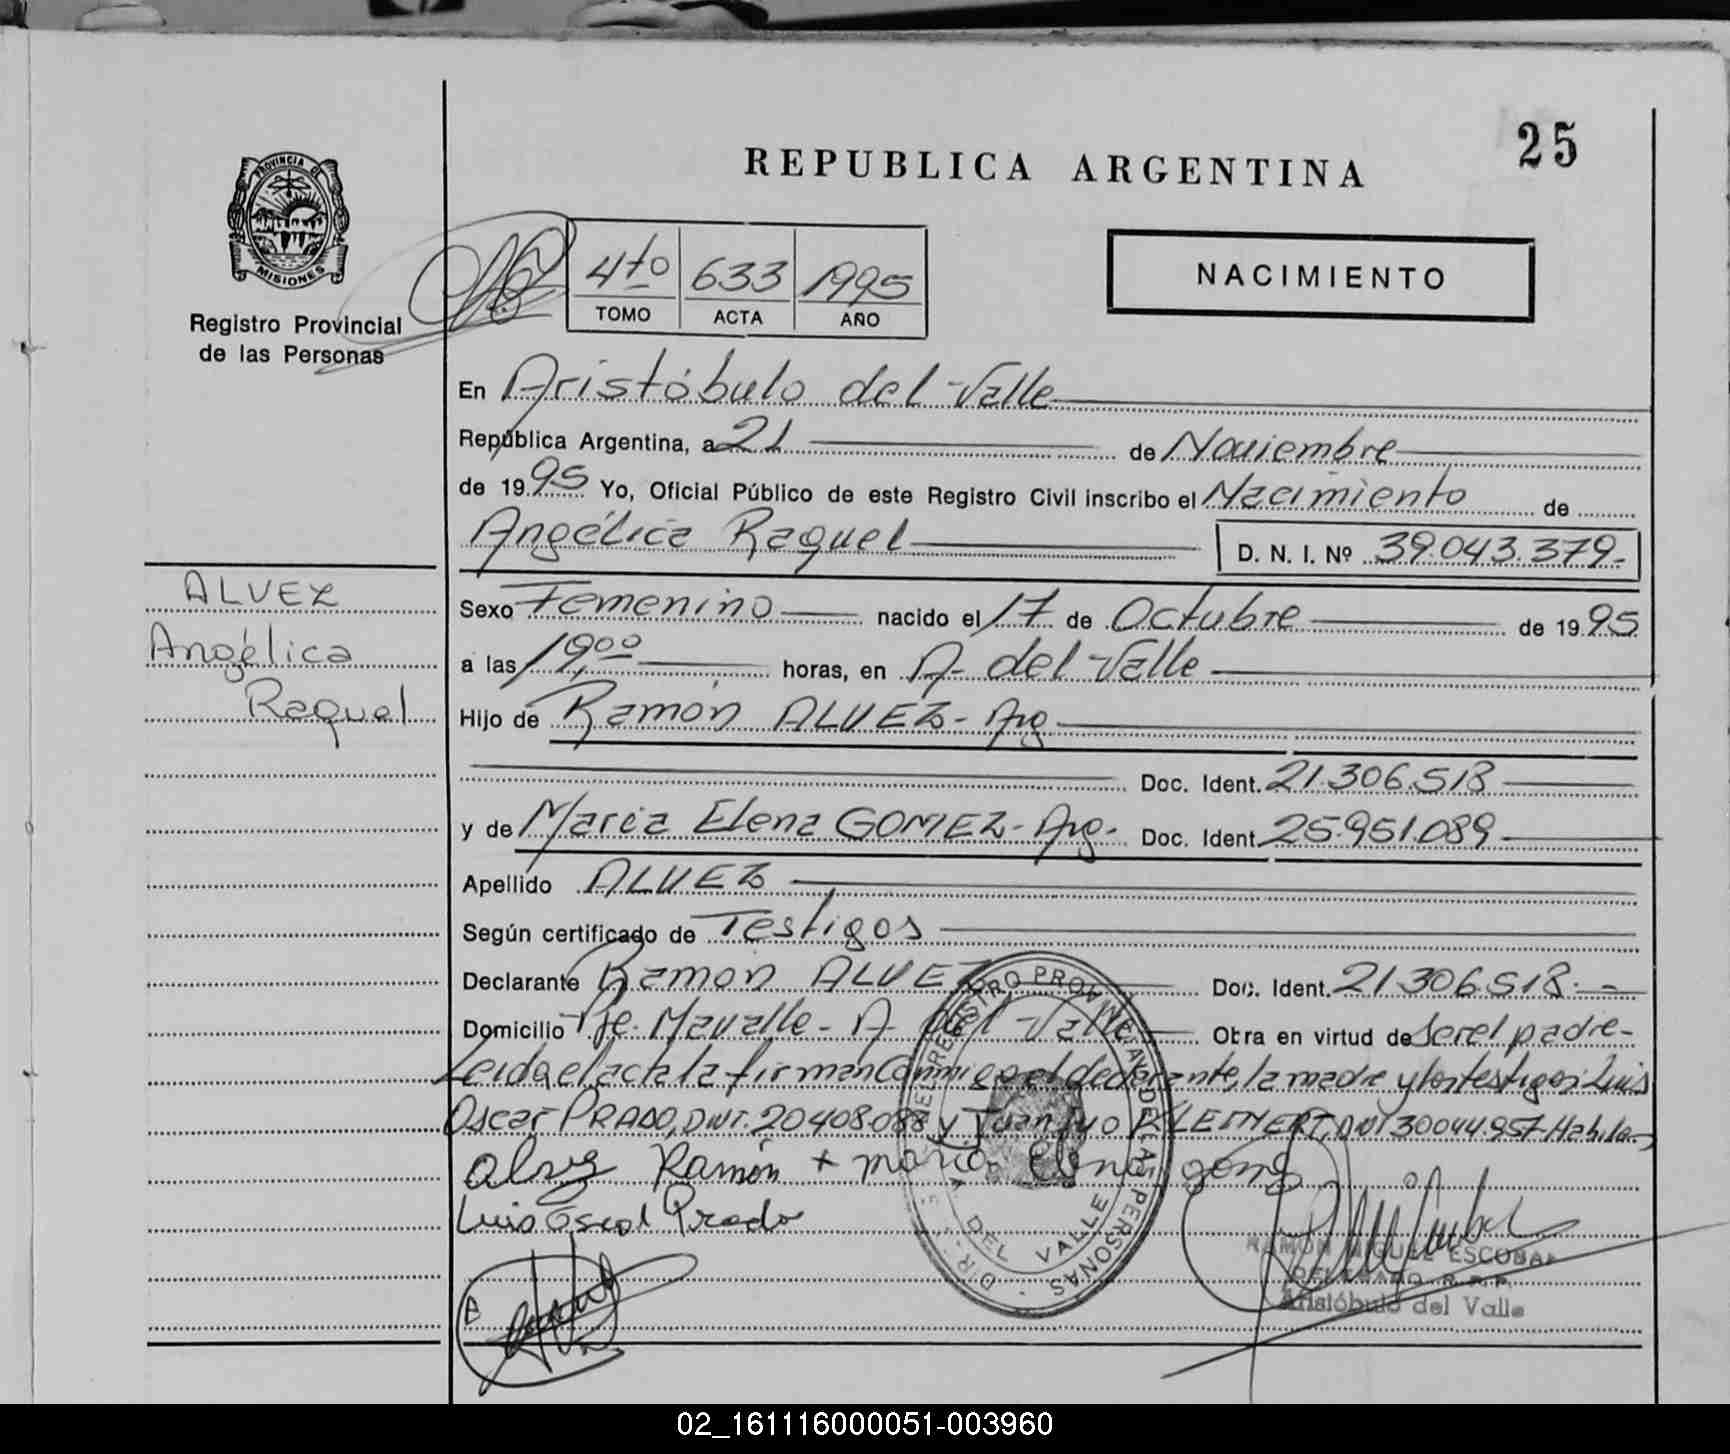 25
REPUBLICA ARGENTINA
PROVINCIA DE
MISIONES
Registro Provincial
de las Personas
4to 633 1995
TOMO ACTA AÑO
NACIMIENTO
En Aristóbulo del Valle
República Argentina, a 21 de Noviembre
de 1995 Yo, Oficial Público de este Registro Civil inscribo el Nacimiento de
Angélica Raquel D. N. I. Nº 39.043.379-
ALVEZ
Angélica
Raquel
Sexo Femenino nacido el 17 de Octubre de 1995
a las 19,00 horas, en A. del Valle
Hijo de Ramón ALVEZ - Arg.
Doc. Ident. 21.306.518
y de Maria Elena GOMEZ - Arg. - Doc. Ident. 25.951.089
Apellido ALVEZ
Según certificado de Testigos
Declarante Ramón ALVEZ Doc. Ident. 21.306.518.-
Domicilio Pje. Mavalle - A. del Valle Obra en virtud de Ser el padre -
Leida el acta la firman Conmigo el declarante, la madre y los testigos: Luis
Oscar PRADO, DNI. 20408.088 y Juan KLEINERT, DNI 30044.957 Habiles
alvez Ramón + maria Elena gomez
Luis Oscar Prado
DIR. DEL REGISTRO PROVINCIAL DE LAS PERSONAS
A. DEL VALLE
RAMON MIGUEL ESCOBAR
DELEGADO R.P.P.
Aristóbulo del Valle
02_161116000051-003960